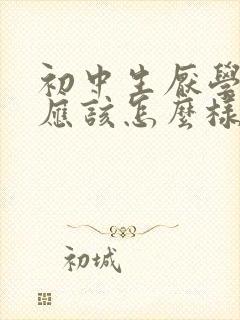 初中生厭學
應該怎麼樣
初城